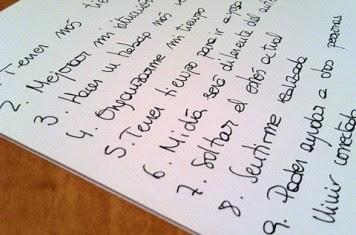 1. Tener más tie
2. Mejorar mi situació
3. Hacer mi trabajo más
4. Organizarme mi tiempo
5. Tener tiempo para ir a
6. Mi día será diferente del
7. Soltar el estrés actual
8. Sentirme realizada
9. Poder ayudar a otras personas
Vivir conectada